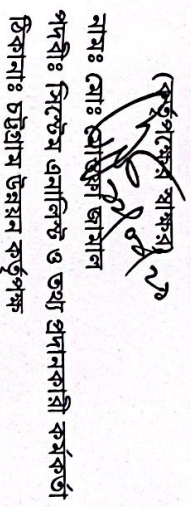 (কর্তৃপক্ষের স্বাক্ষর)
নামঃ মোঃ মোস্তফা জামাল
পদবীঃ সিস্টেম এনালিস্ট ও তথ্য প্রদানকারী কর্মকর্তা
ঠিকানাঃ চট্টগ্রাম উন্নয়ন কর্তৃপক্ষ